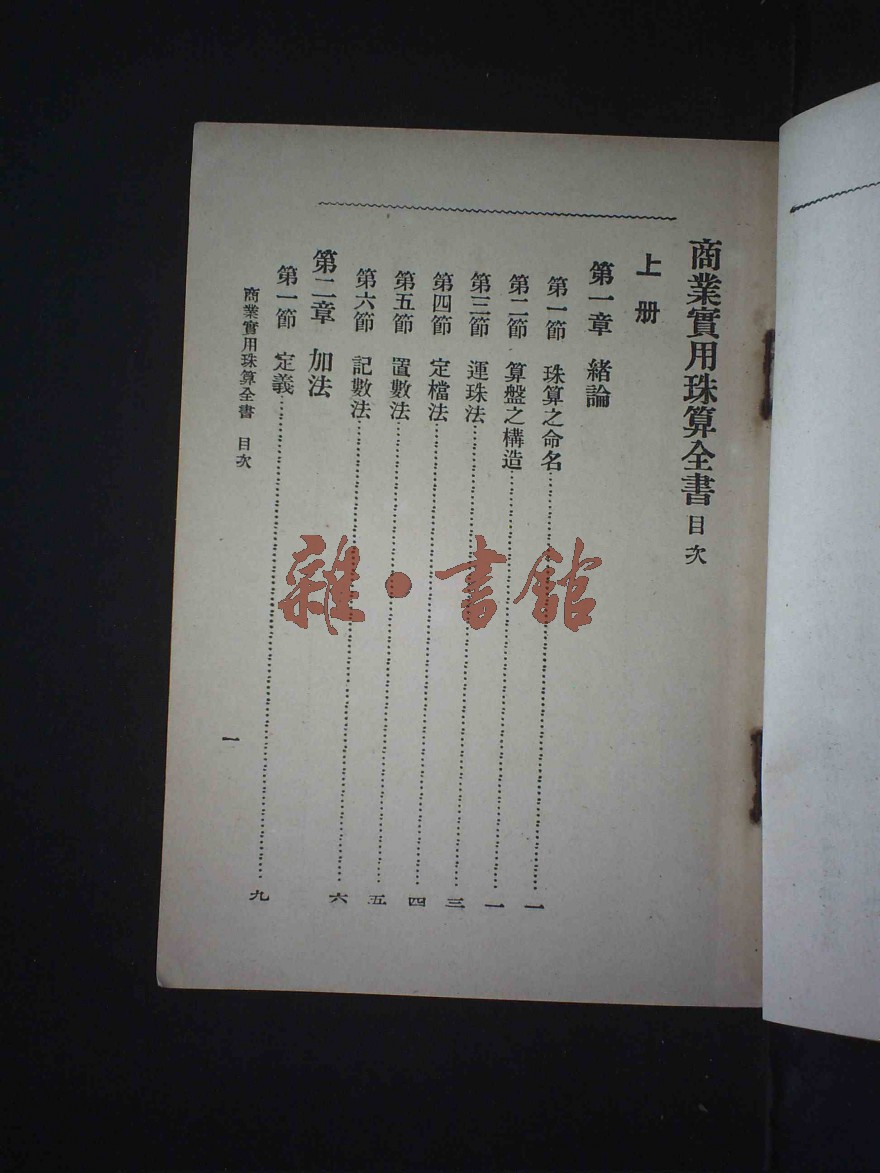 商業實用珠算全書 目次
上册
第一章 緒論
第一節 珠算之命名……………………一
第二節 算盤之構造……………………一
第三節 運珠法……………………三
第四節 定檔法……………………四
第五節 置數法……………………五
第六節 記數法……………………六
第二章 加法
第一節 定義……………………九
商業實用珠算全書 目次
一
雜·書館